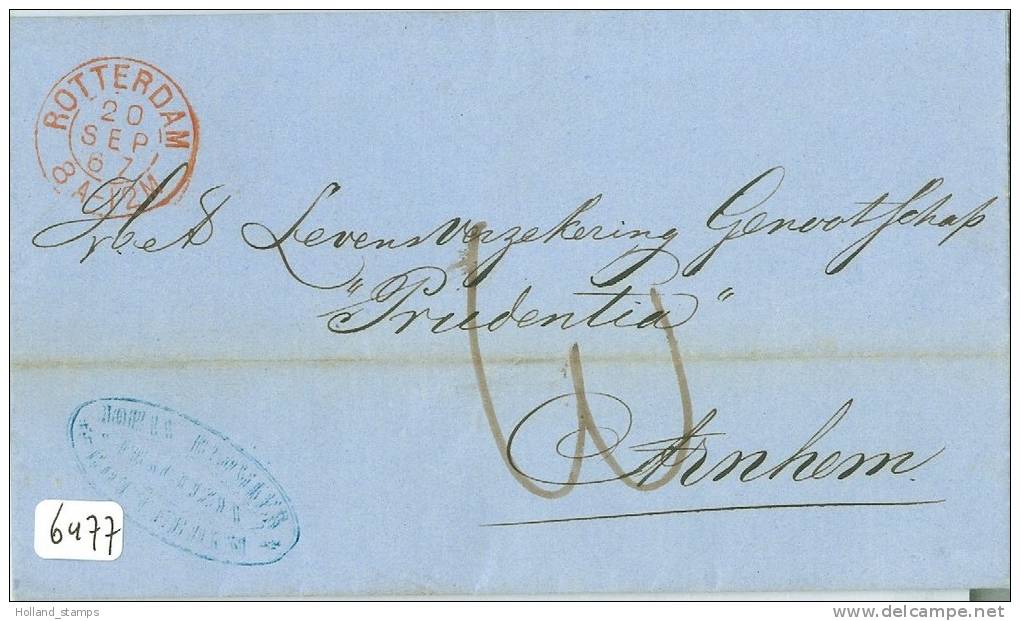 ROTTERDAM
20
SEP
67
8
A–12M
Het Levensverzekering Genootschap
"Prudentia"
Arnhem.
6477
Holland_stamps
www.delcampe.net